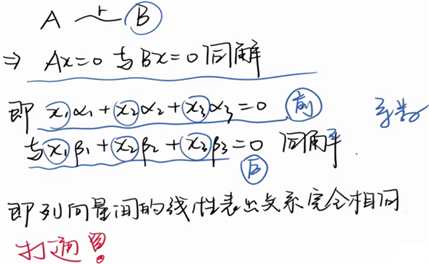 A ~r B
⇒ Ax=0 与 Bx=0 同解
即 x₁α₁+x₂α₂+x₃α₃=0 前 系数
与 x₁β₁+x₂β₂+x₂β₃=0 同解.
后
即列向量间的线性表出关系完全相同
打通!